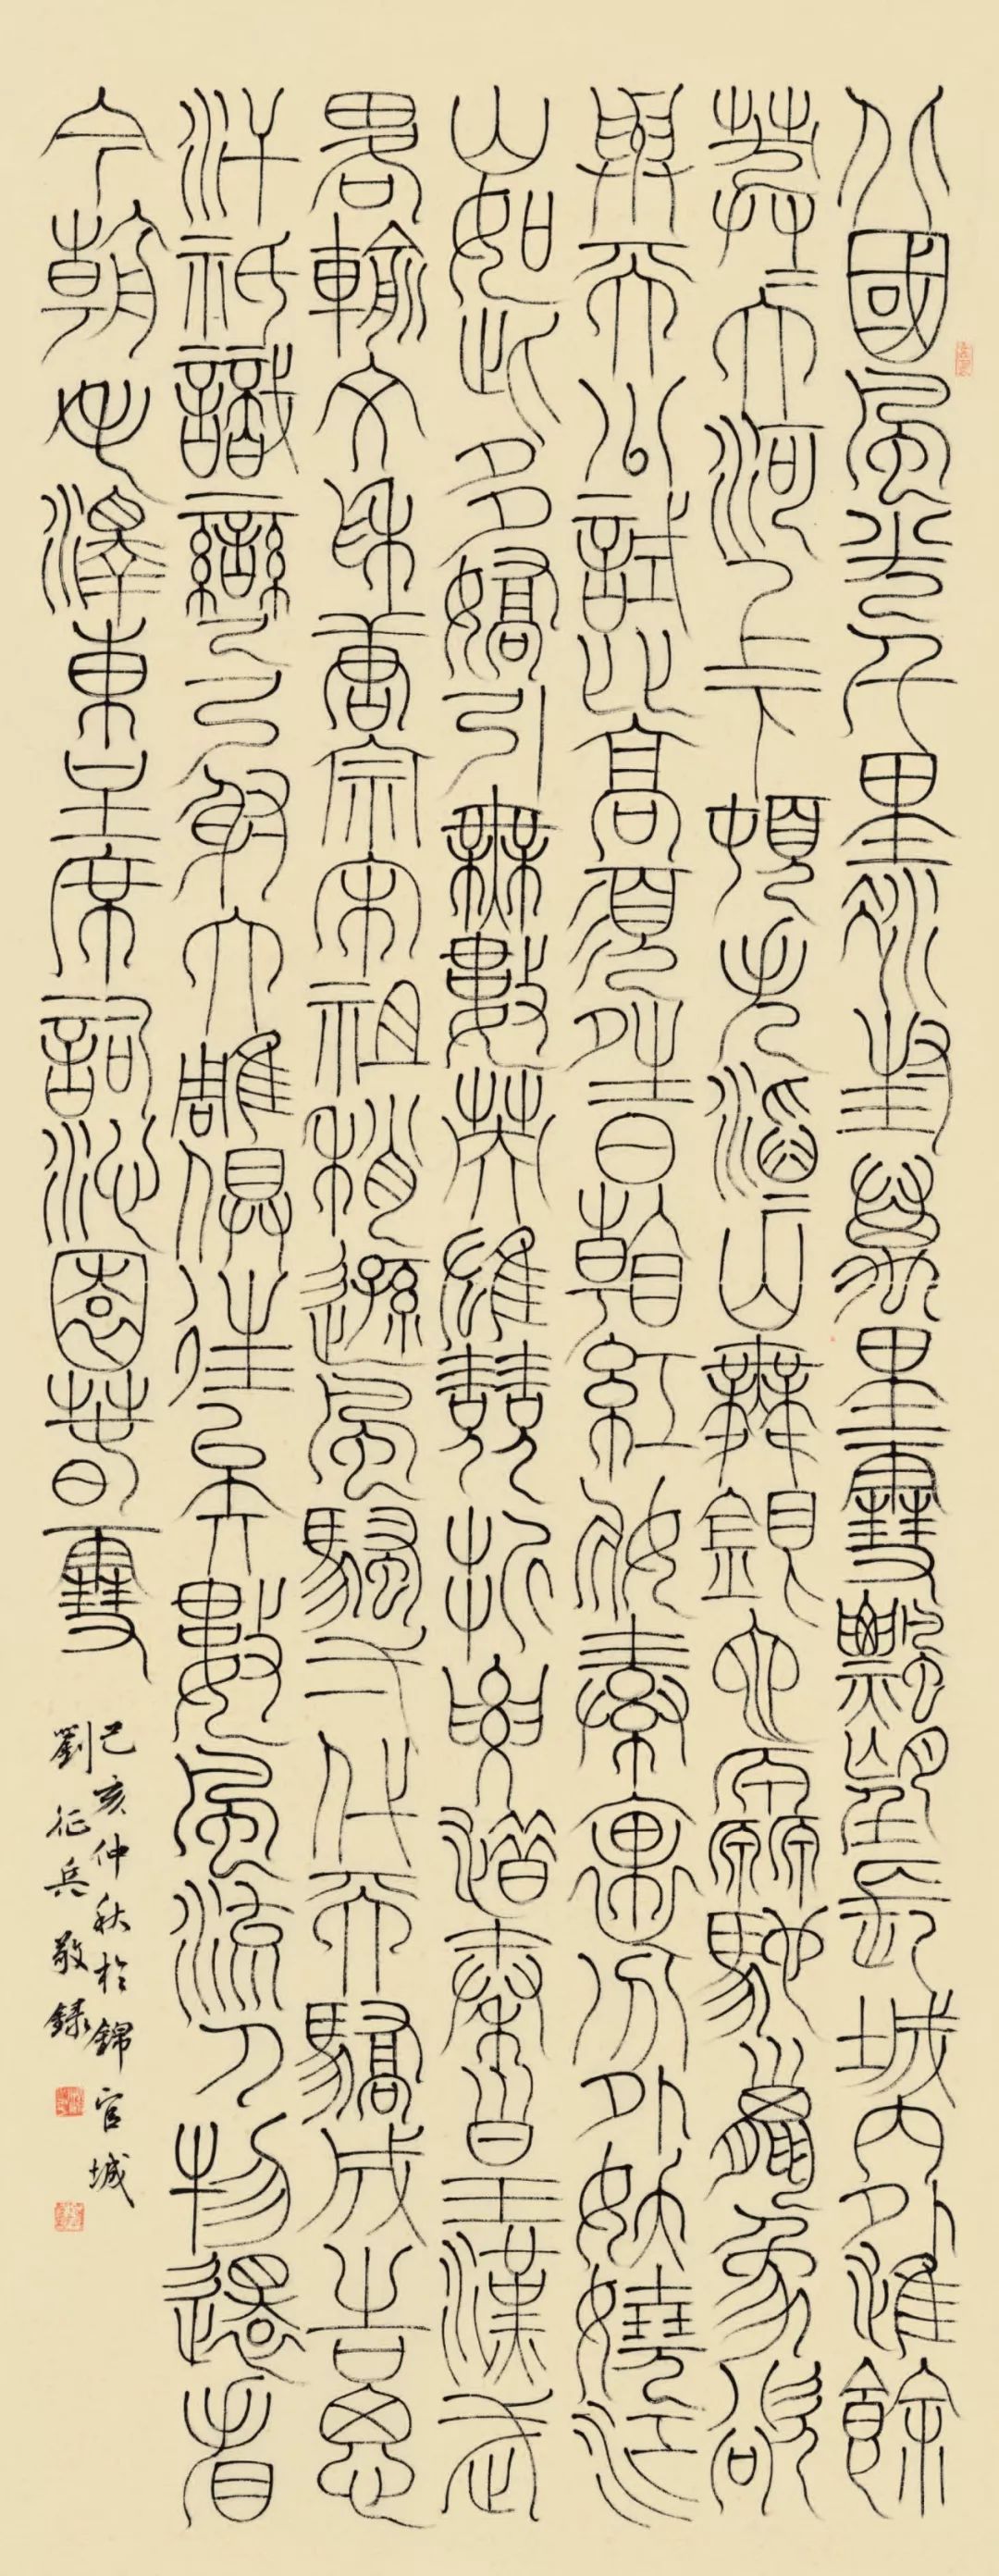 北國風光千里冰封萬里雪飄望長城內外惟餘
莽〻大河上下頓失滔〻山舞銀蛇原馳蠟象欲
與天公試比高須晴日看紅妝素裹分外妖嬈江
山如此多嬌引無數英雄競折腰惜秦皇漢武
略輸文采唐宗宋祖稍遜風騷一代天驕成吉思
汗祇識彎弓射大雕俱往矣數風流人物還看
今朝毛澤東主席詞沁園春雪
己亥仲秋於錦官城
劉征兵敬錄